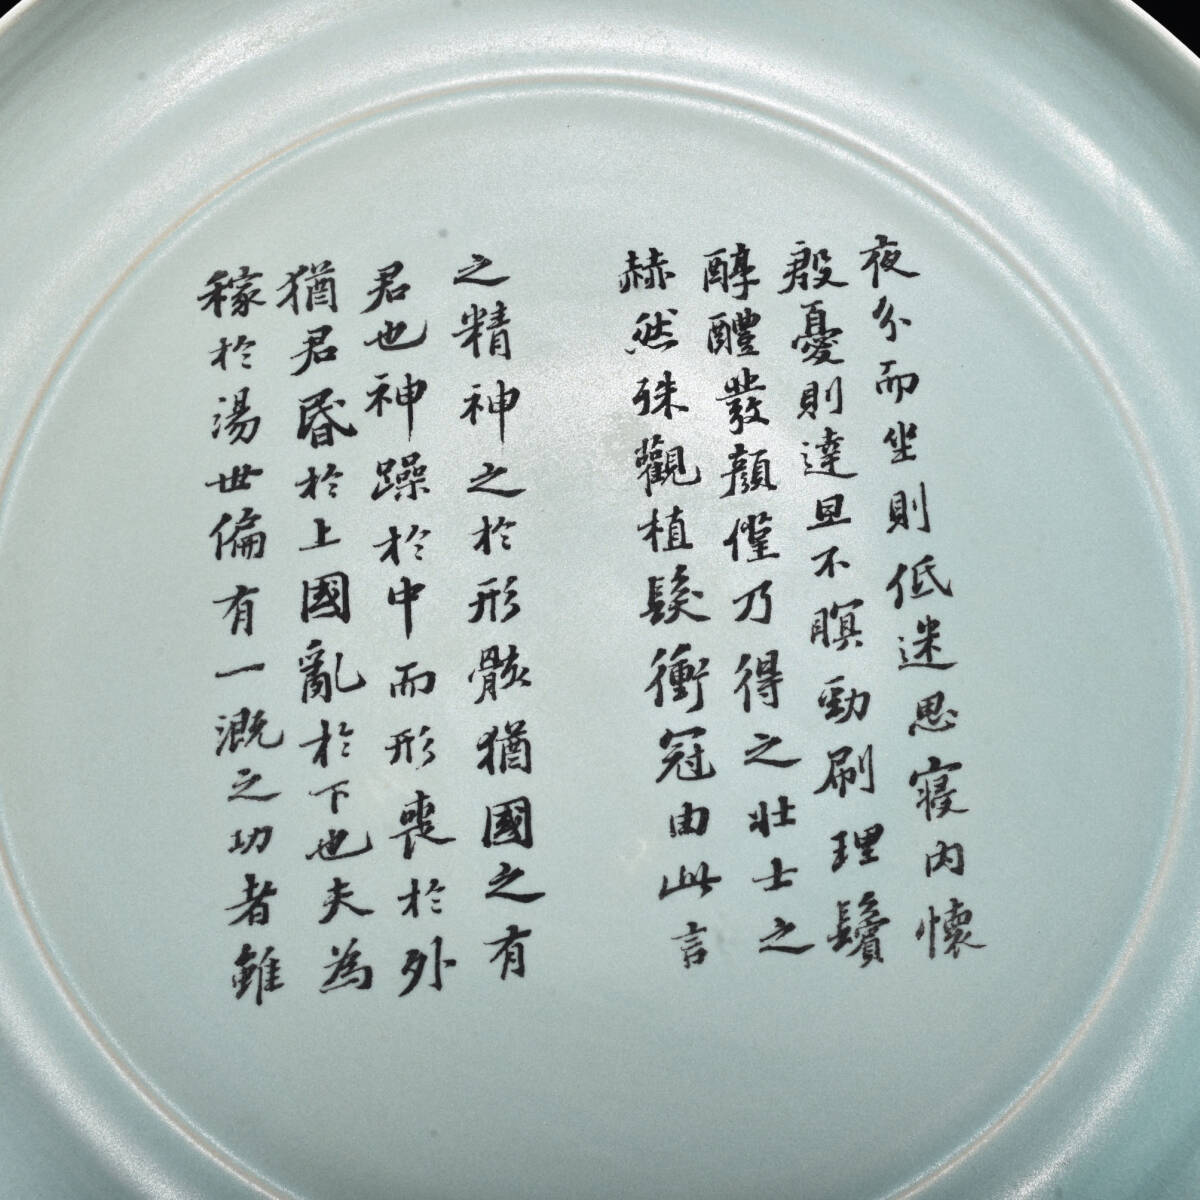 夜分而坐則低迷思寢內懷
殷憂則達旦不瞑勁刷理鬢
醇醴發顏僅乃得之壯士之
赫然殊觀植髮衝冠由此言
之精神之於形骸猶國之有
君也神躁於中而形喪於外
猶君昏於上國亂於下也夫為
稼於湯世偏有一溉之功者雖